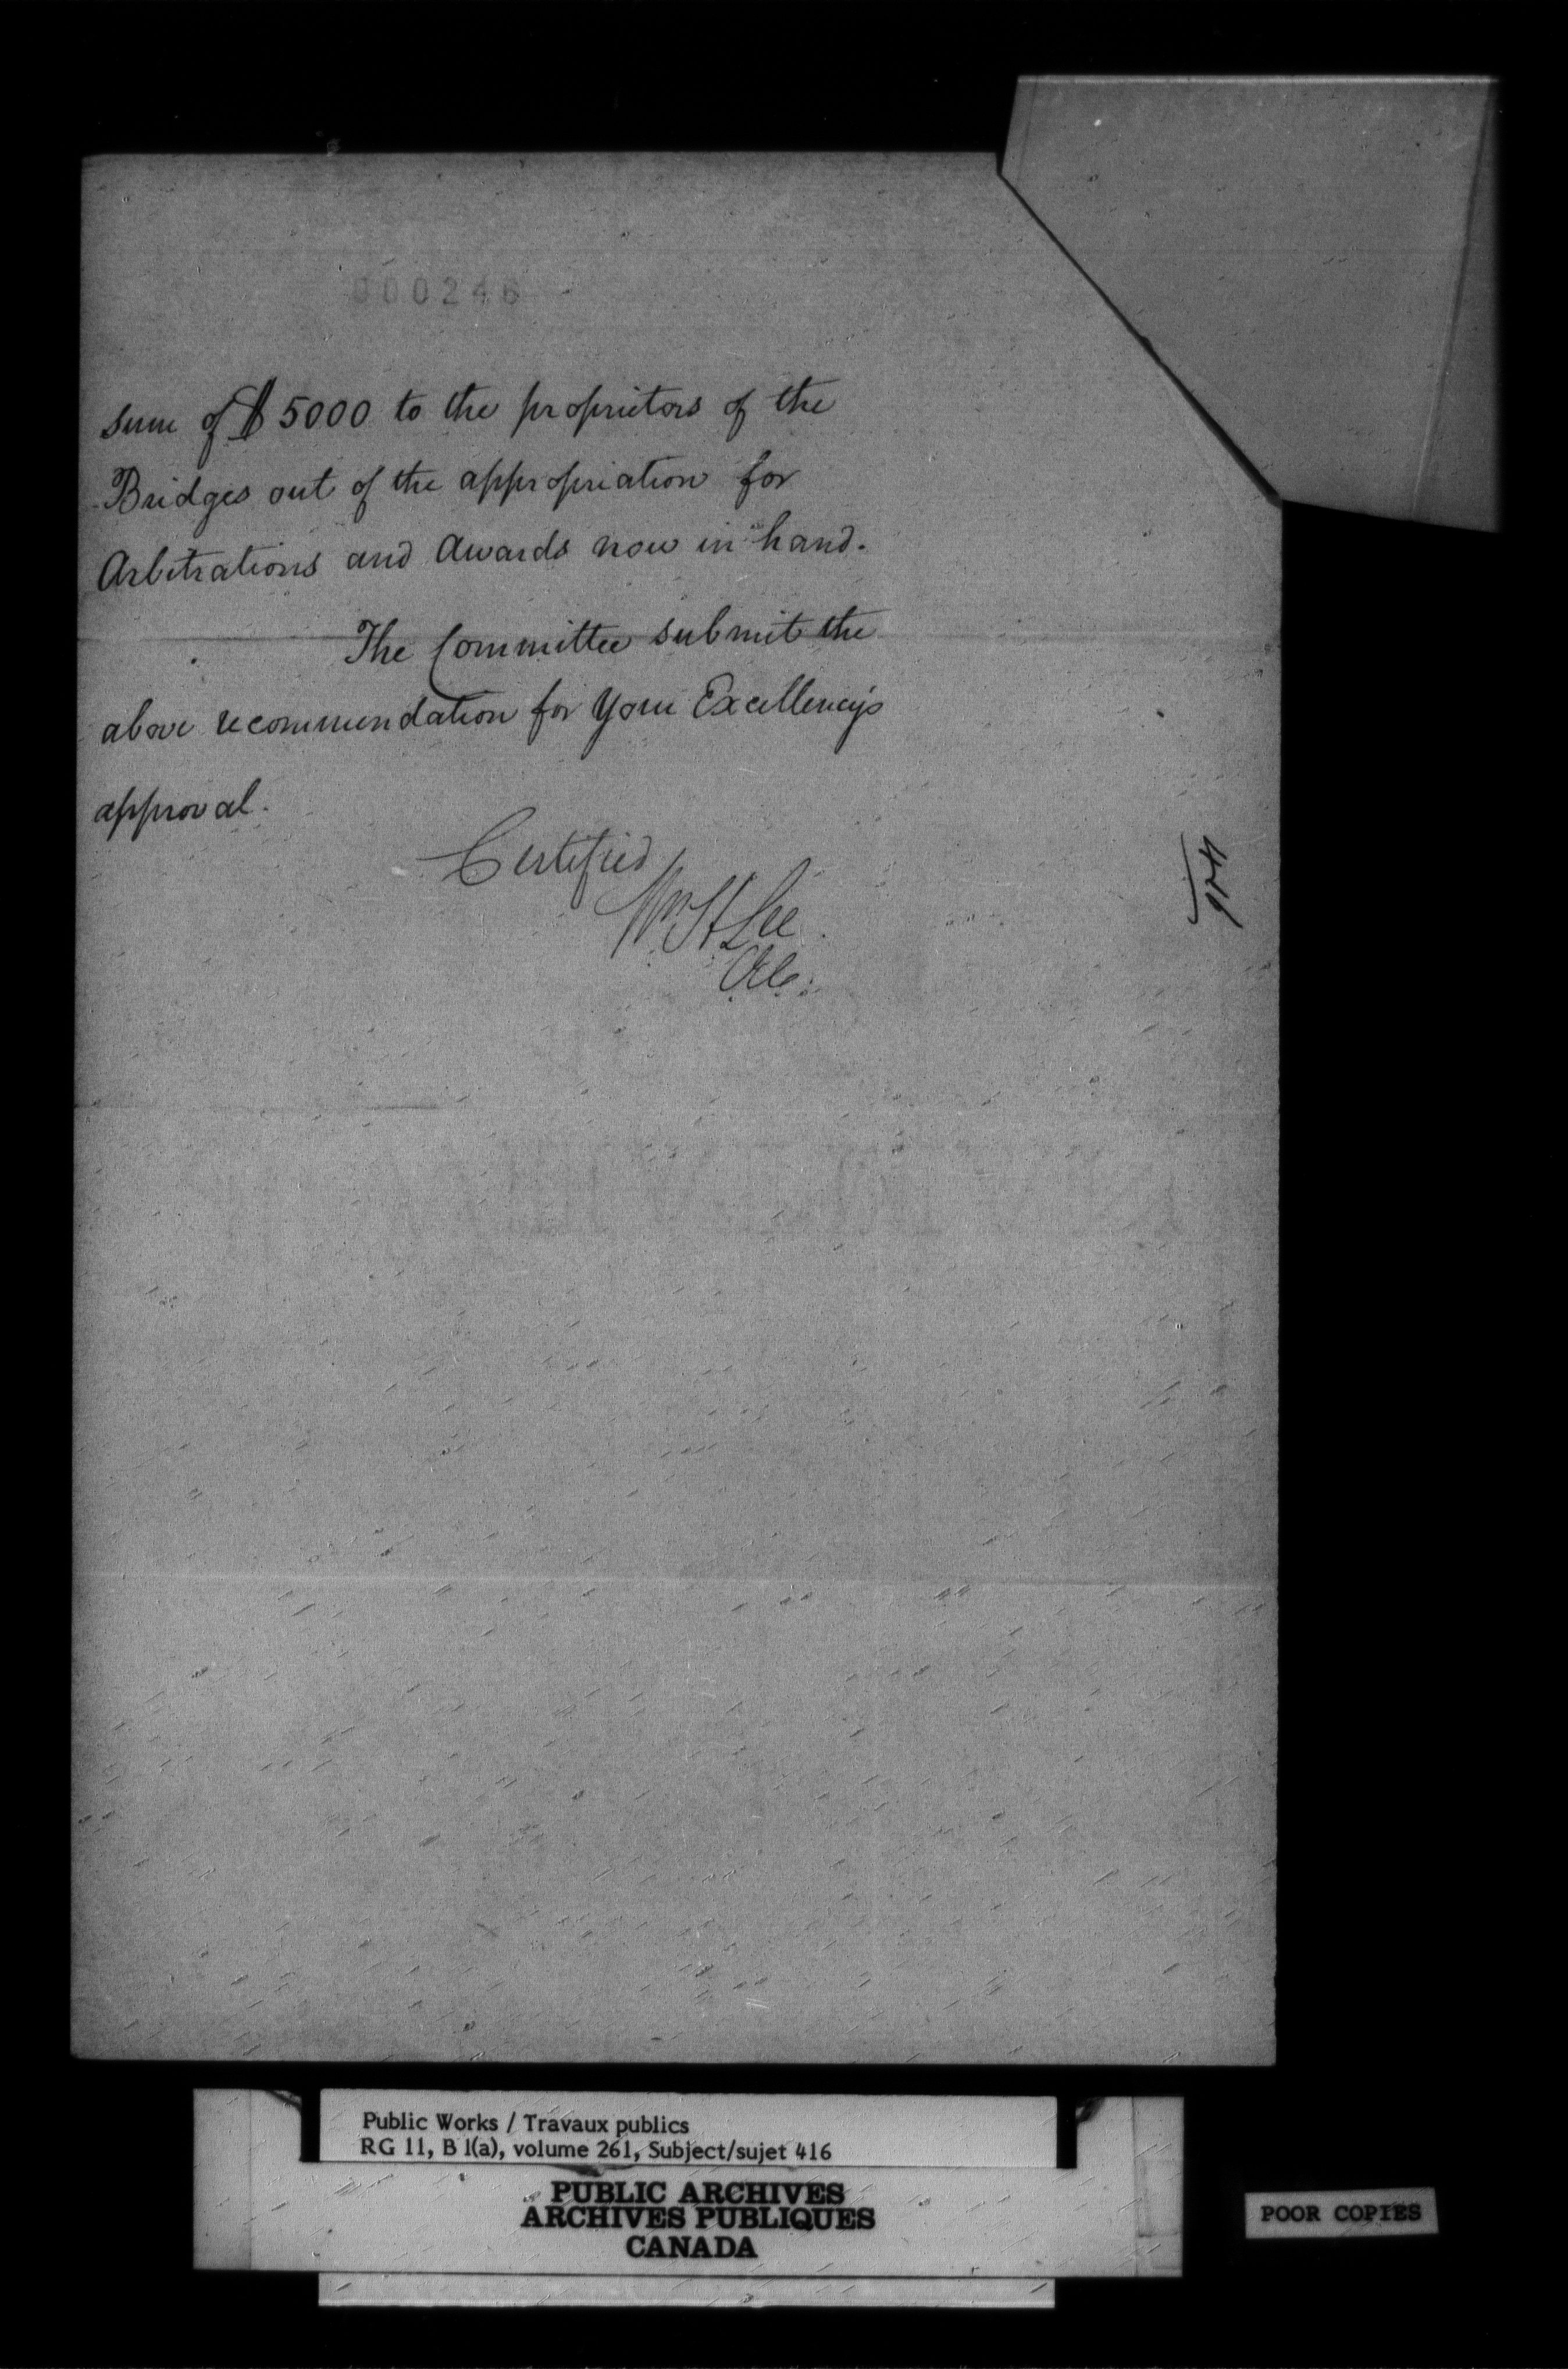 000246
sum of $5000 to the proprietors of the
Bridges out of the appropriation for
Arbitrations and Awards now in hand.
The Committee submit the
above recommendation for Your Excellency's
approval.
Certified
Wm H Lee
416
Public Works / Travaux publics
RG 11, B 1(a), volume 261, Subject/sujet 416
PUBLIC ARCHIVES
ARCHIVES PUBLIQUES
CANADA
POOR COPIES